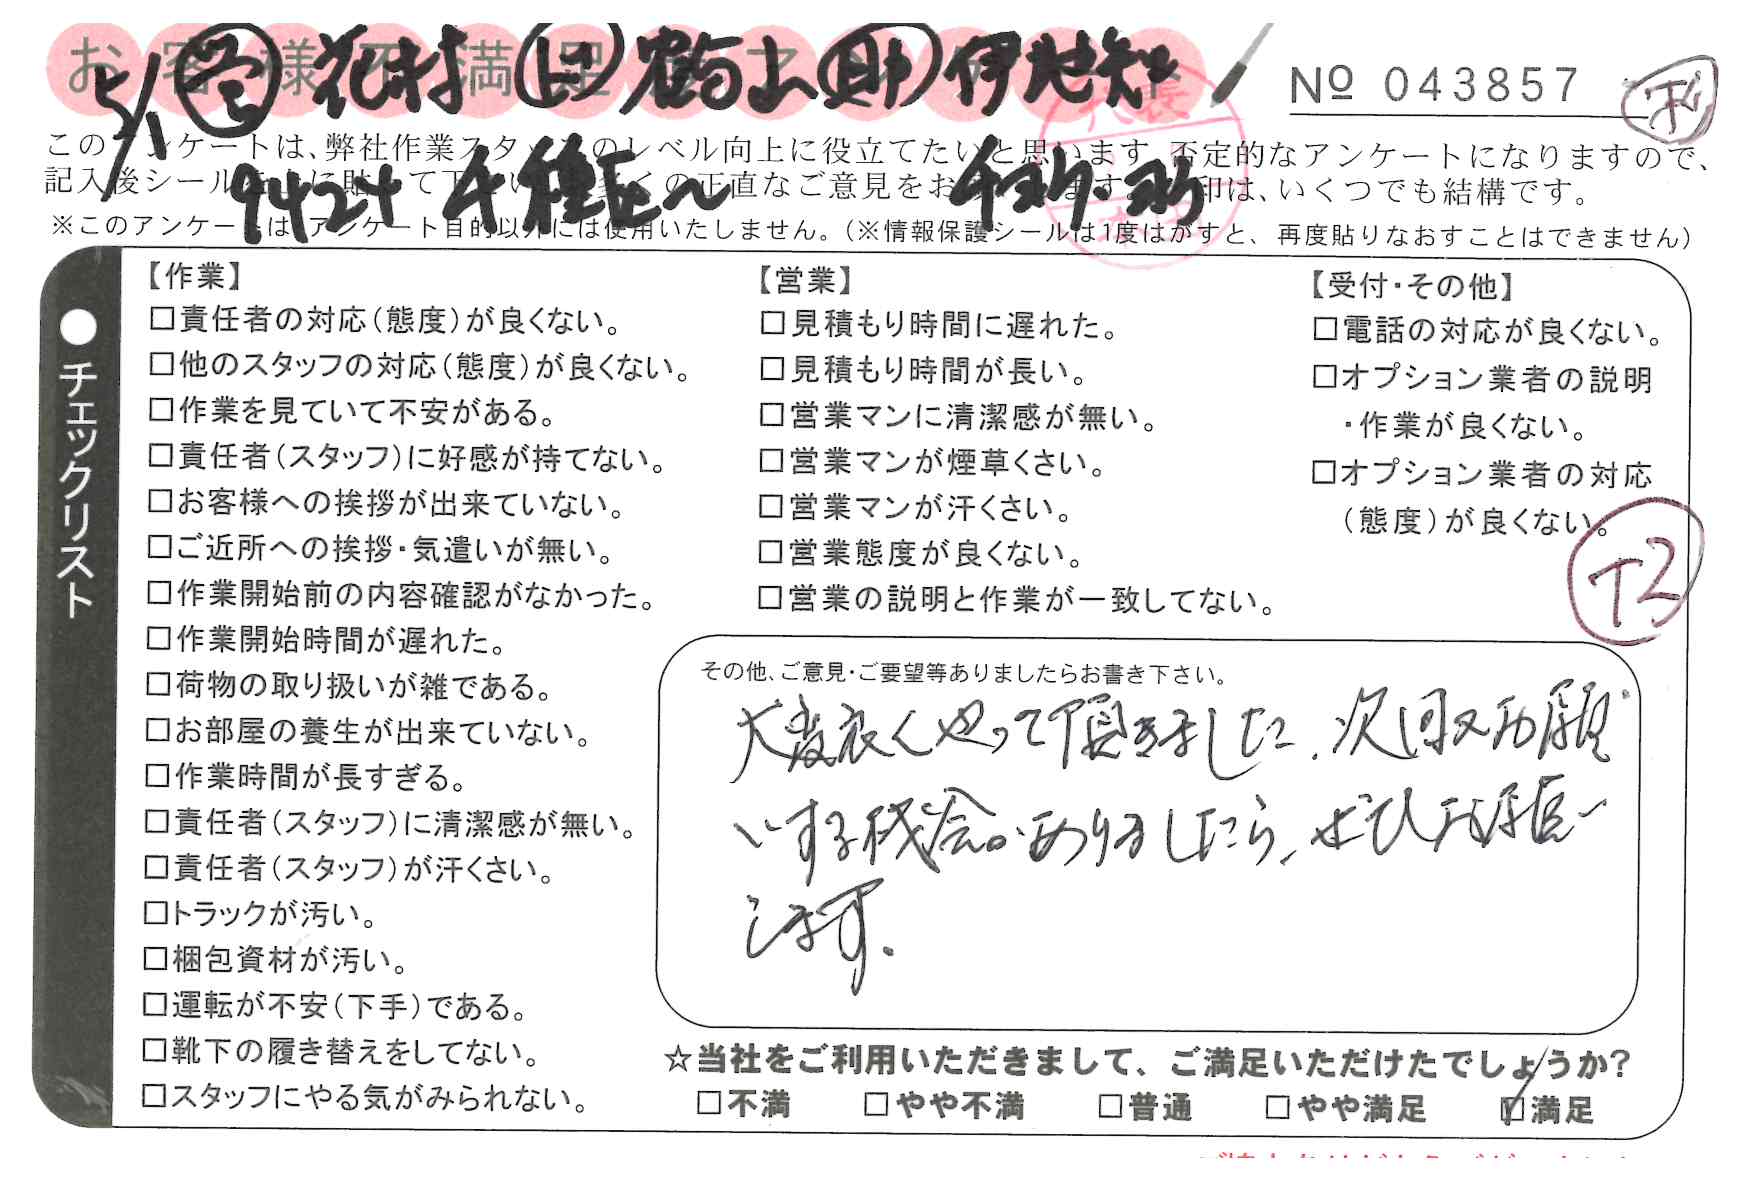 お客様不満足アンケート
5/1 花村 上 鶴上 助 伊地知
№ 043857
このアンケートは、弊社作業スタッフのレベル向上に役立てたいと思います。否定的なアンケートになりますので、
記入後シールを上に貼って下さい。多くの正直なご意見をお
印は、いくつでも結構です。
942 千種区〜
※このアンケートは、アンケート目的以外には使用いたしません。(※情報保護シールは1度はがすと、再度貼りなおすことはできません)
●チェックリスト
【作業】
□責任者の対応(態度)が良くない。
□他のスタッフの対応(態度)が良くない。
□作業を見ていて不安がある。
□責任者(スタッフ)に好感が持てない。
□お客様への挨拶が出来ていない。
□ご近所への挨拶・気遣いが無い。
□作業開始前の内容確認がなかった。
□作業開始時間が遅れた。
□荷物の取り扱いが雑である。
□お部屋の養生が出来ていない。
□作業時間が長すぎる。
□責任者(スタッフ)に清潔感が無い。
□責任者(スタッフ)が汗くさい。
□トラックが汚い。
□梱包資材が汚い。
□運転が不安(下手)である。
□靴下の履き替えをしてない。
□スタッフにやる気がみられない。
【営業】
□見積もり時間に遅れた。
□見積もり時間が長い。
□営業マンに清潔感が無い。
□営業マンが煙草くさい。
□営業マンが汗くさい。
□営業態度が良くない。
□営業の説明と作業が一致してない。
【受付・その他】
□電話の対応が良くない。
□オプション業者の説明
・作業が良くない。
□オプション業者の対応
(態度)が良くない。
T2
その他、ご意見・ご要望等ありましたらお書き下さい。
大変良くやって頂きました、次回又お願
いする機会がありましたら、ぜひお願い
します.
☆当社をご利用いただきまして、ご満足いただけたでしょうか?
□不満 □やや不満 □普通 □やや満足 ☑満足